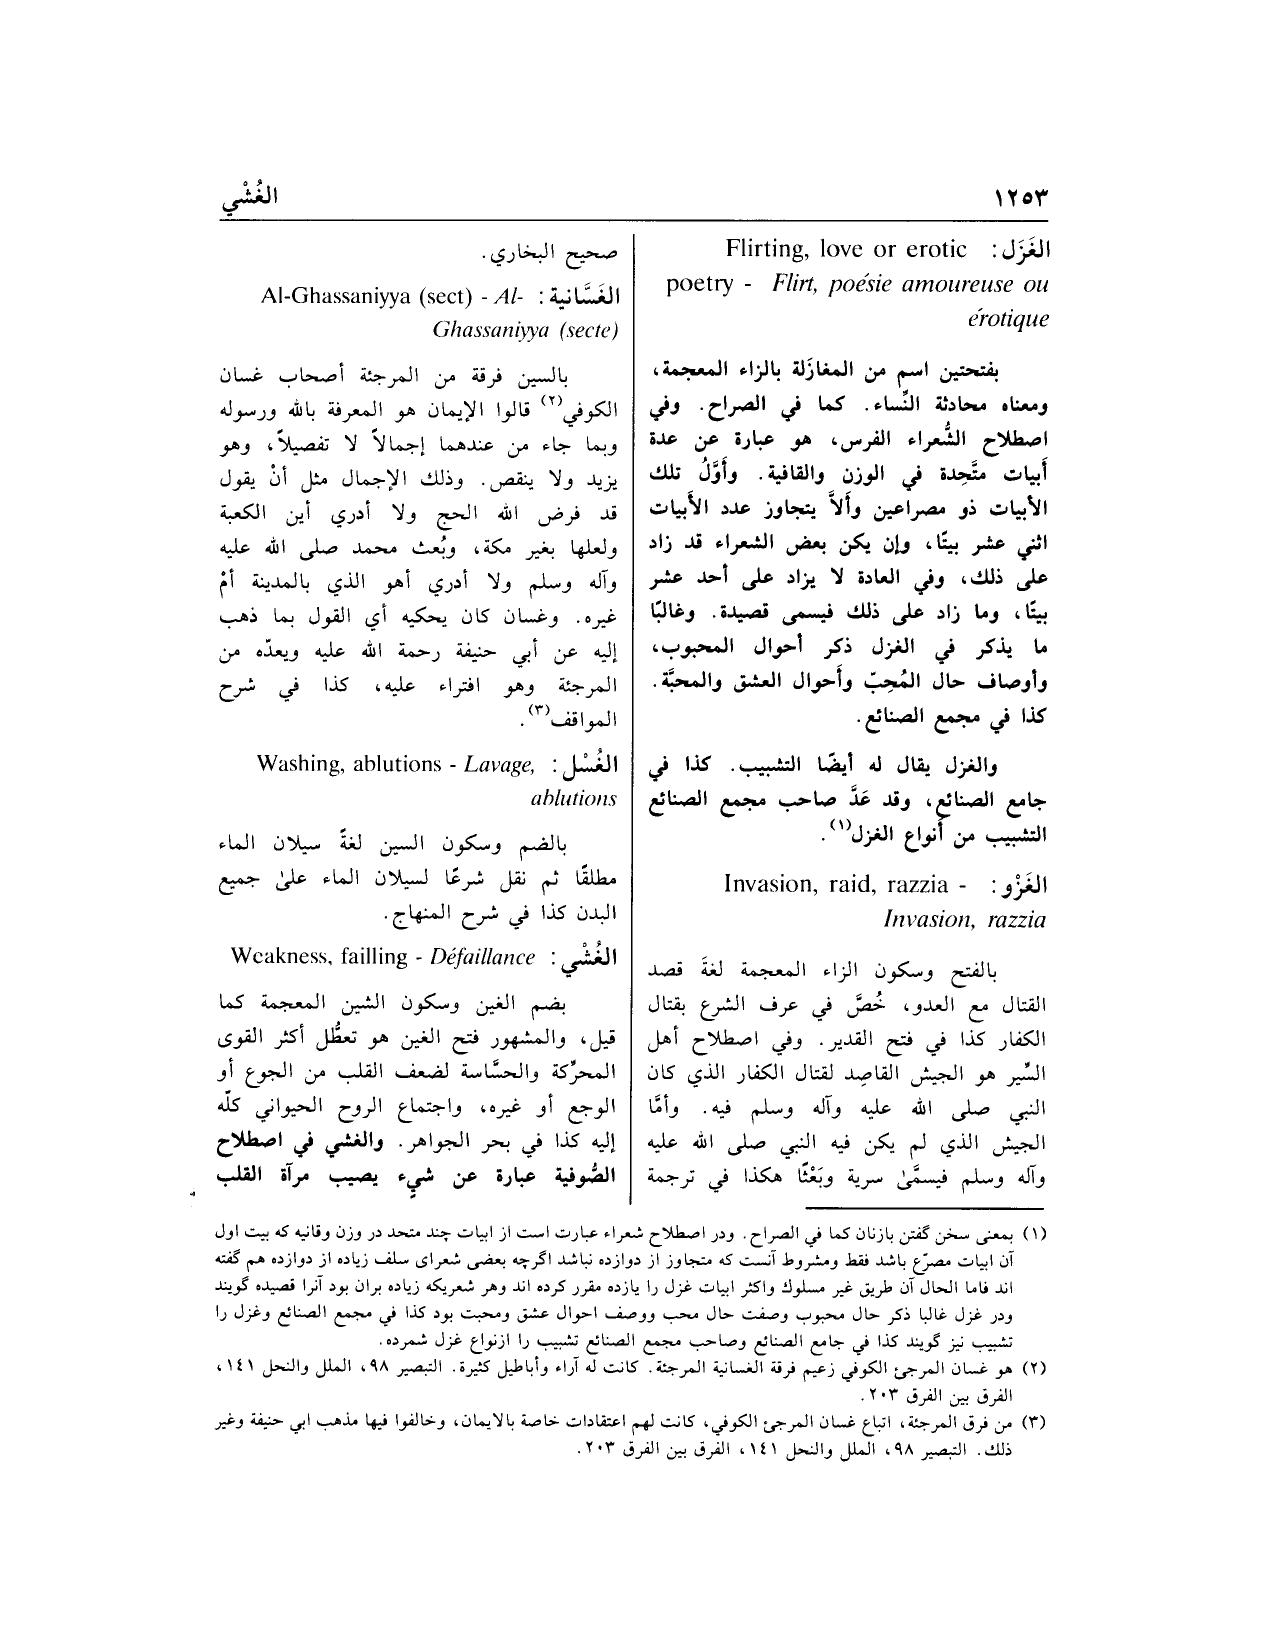 ١٢٥٣
الغُشْي
الغَزَل: Flirting, love or erotic
poetry - Flirt, poésie amoureuse ou
érotique
بفتحتين اسم من المغازَلة بالزاء المعجمة،
ومعناه محادثة النِّساء. كما في الصراح. وفي
اصطلاح الشُّعراء الفرس، هو عبارة عن عدة
أبيات متَّحدة في الوزن والقافية. وأوَّلُ تلك
الأبيات ذو مصراعين وألاَّ يتجاوز عدد الأبيات
اثني عشر بيتًا، وإن يكن بعض الشعراء قد زاد
على ذلك، وفي العادة لا يزاد على أحد عشر
بيتًا، وما زاد على ذلك فيسمى قصيدة. وغالبًا
ما يذكر في الغزل ذكر أحوال المحبوب،
وأوصاف حال المُحِبّ وأحوال العشق والمحبَّة.
كذا في مجمع الصنائع.
والغزل يقال له أيضًا التشبيب. كذا في
جامع الصنائع، وقد عَدَّ صاحب مجمع الصنائع
التشبيب من أنواع الغزل(١).
الغَزْو: Invasion, raid, razzia -
Invasion, razzia
بالفتح وسكون الزاء المعجمة لغةً قصد
القتال مع العدو، خُصَّ في عرف الشرع بقتال
الكفار كذا في فتح القدير. وفي اصطلاح أهل
السِّير هو الجيش القاصِد لقتال الكفار الذي كان
النبي صلى الله عليه وآله وسلم فيه. وأمَّا
الجيش الذي لم يكن فيه النبي صلى الله عليه
وآله وسلم فيسمَّىٰ سرية وبَعْثًا هكذا في ترجمة
صحيح البخاري.
الغَسَّانية: Al-Ghassaniyya (sect) - Al-
Ghassaniyya (secte)
بالسين فرقة من المرجئة أصحاب غسان
الكوفي(٢) قالوا الإيمان هو المعرفة بالله ورسوله
وبما جاء من عندهما إجمالاً لا تفصيلاً، وهو
يزيد ولا ينقص. وذلك الإجمال مثل أنْ يقول
قد فرض الله الحج ولا أدري أين الكعبة
ولعلها بغير مكة، وبُعث محمد صلى الله عليه
وآله وسلم ولا أدري أهو الذي بالمدينة أمْ
غيره. وغسان كان يحكيه أي القول بما ذهب
إليه عن أبي حنيفة رحمة الله عليه ويعدّه من
المرجئة وهو افتراء عليه، كذا في شرح
المواقف(٣).
الغُسْل: Washing, ablutions - Lavage,
ablutions
بالضم وسكون السين لغةً سيلان الماء
مطلقًا ثم نقل شرعًا لسيلان الماء علىٰ جميع
البدن كذا في شرح المنهاج.
الغُشْي: Weakness, failling - Défaillance
بضم الغين وسكون الشين المعجمة كما
قيل، والمشهور فتح الغين هو تعطُّل أكثر القوى
المحرِّكة والحسَّاسة لضعف القلب من الجوع أو
الوجع أو غيره، واجتماع الروح الحيواني كلّه
إليه كذا في بحر الجواهر. والغشي في اصطلاح
الصُّوفية عبارة عن شيءٍ يصيب مرآة القلب
(١) بمعنى سخن گفتن بازنان كما في الصراح. ودر اصطلاح شعراء عبارت است از ابيات چند متحد در وزن وقانيه كه بيت اول
آن ابيات مصرّع باشد فقط ومشروط آنست كه متجاوز از دوازده نباشد اگرچه بعضى شعراى سلف زياده از دوازده هم گفته
اند فاما الحال آن طريق غير مسلوك واكثر ابيات غزل را يازده مقرر كرده اند وهر شعريكه زياده بران بود آنرا قصيده گويند
ودر غزل غالبا ذكر حال محبوب وصفت حال محب ووصف احوال عشق ومحبت بود كذا في مجمع الصنائع وغزل را
تشبيب نيز گويند كذا في جامع الصنائع وصاحب مجمع الصنائع تشبيب را ازنواع غزل شمرده.
(٢) هو غسان المرجئ الكوفي زعيم فرقة الغسانية المرجئة. كانت له آراء وأباطيل كثيرة. التبصير ٩٨، الملل والنحل ١٤١،
الفرق بين الفرق ٢٠٣.
(٣) من فرق المرجئة، اتباع غسان المرجئ الكوفي، كانت لهم اعتقادات خاصة بالايمان، وخالفوا فيها مذهب ابي حنيفة وغير
ذلك. التبصير ٩٨، الملل والنحل ١٤١، الفرق بين الفرق ٢٠٣.